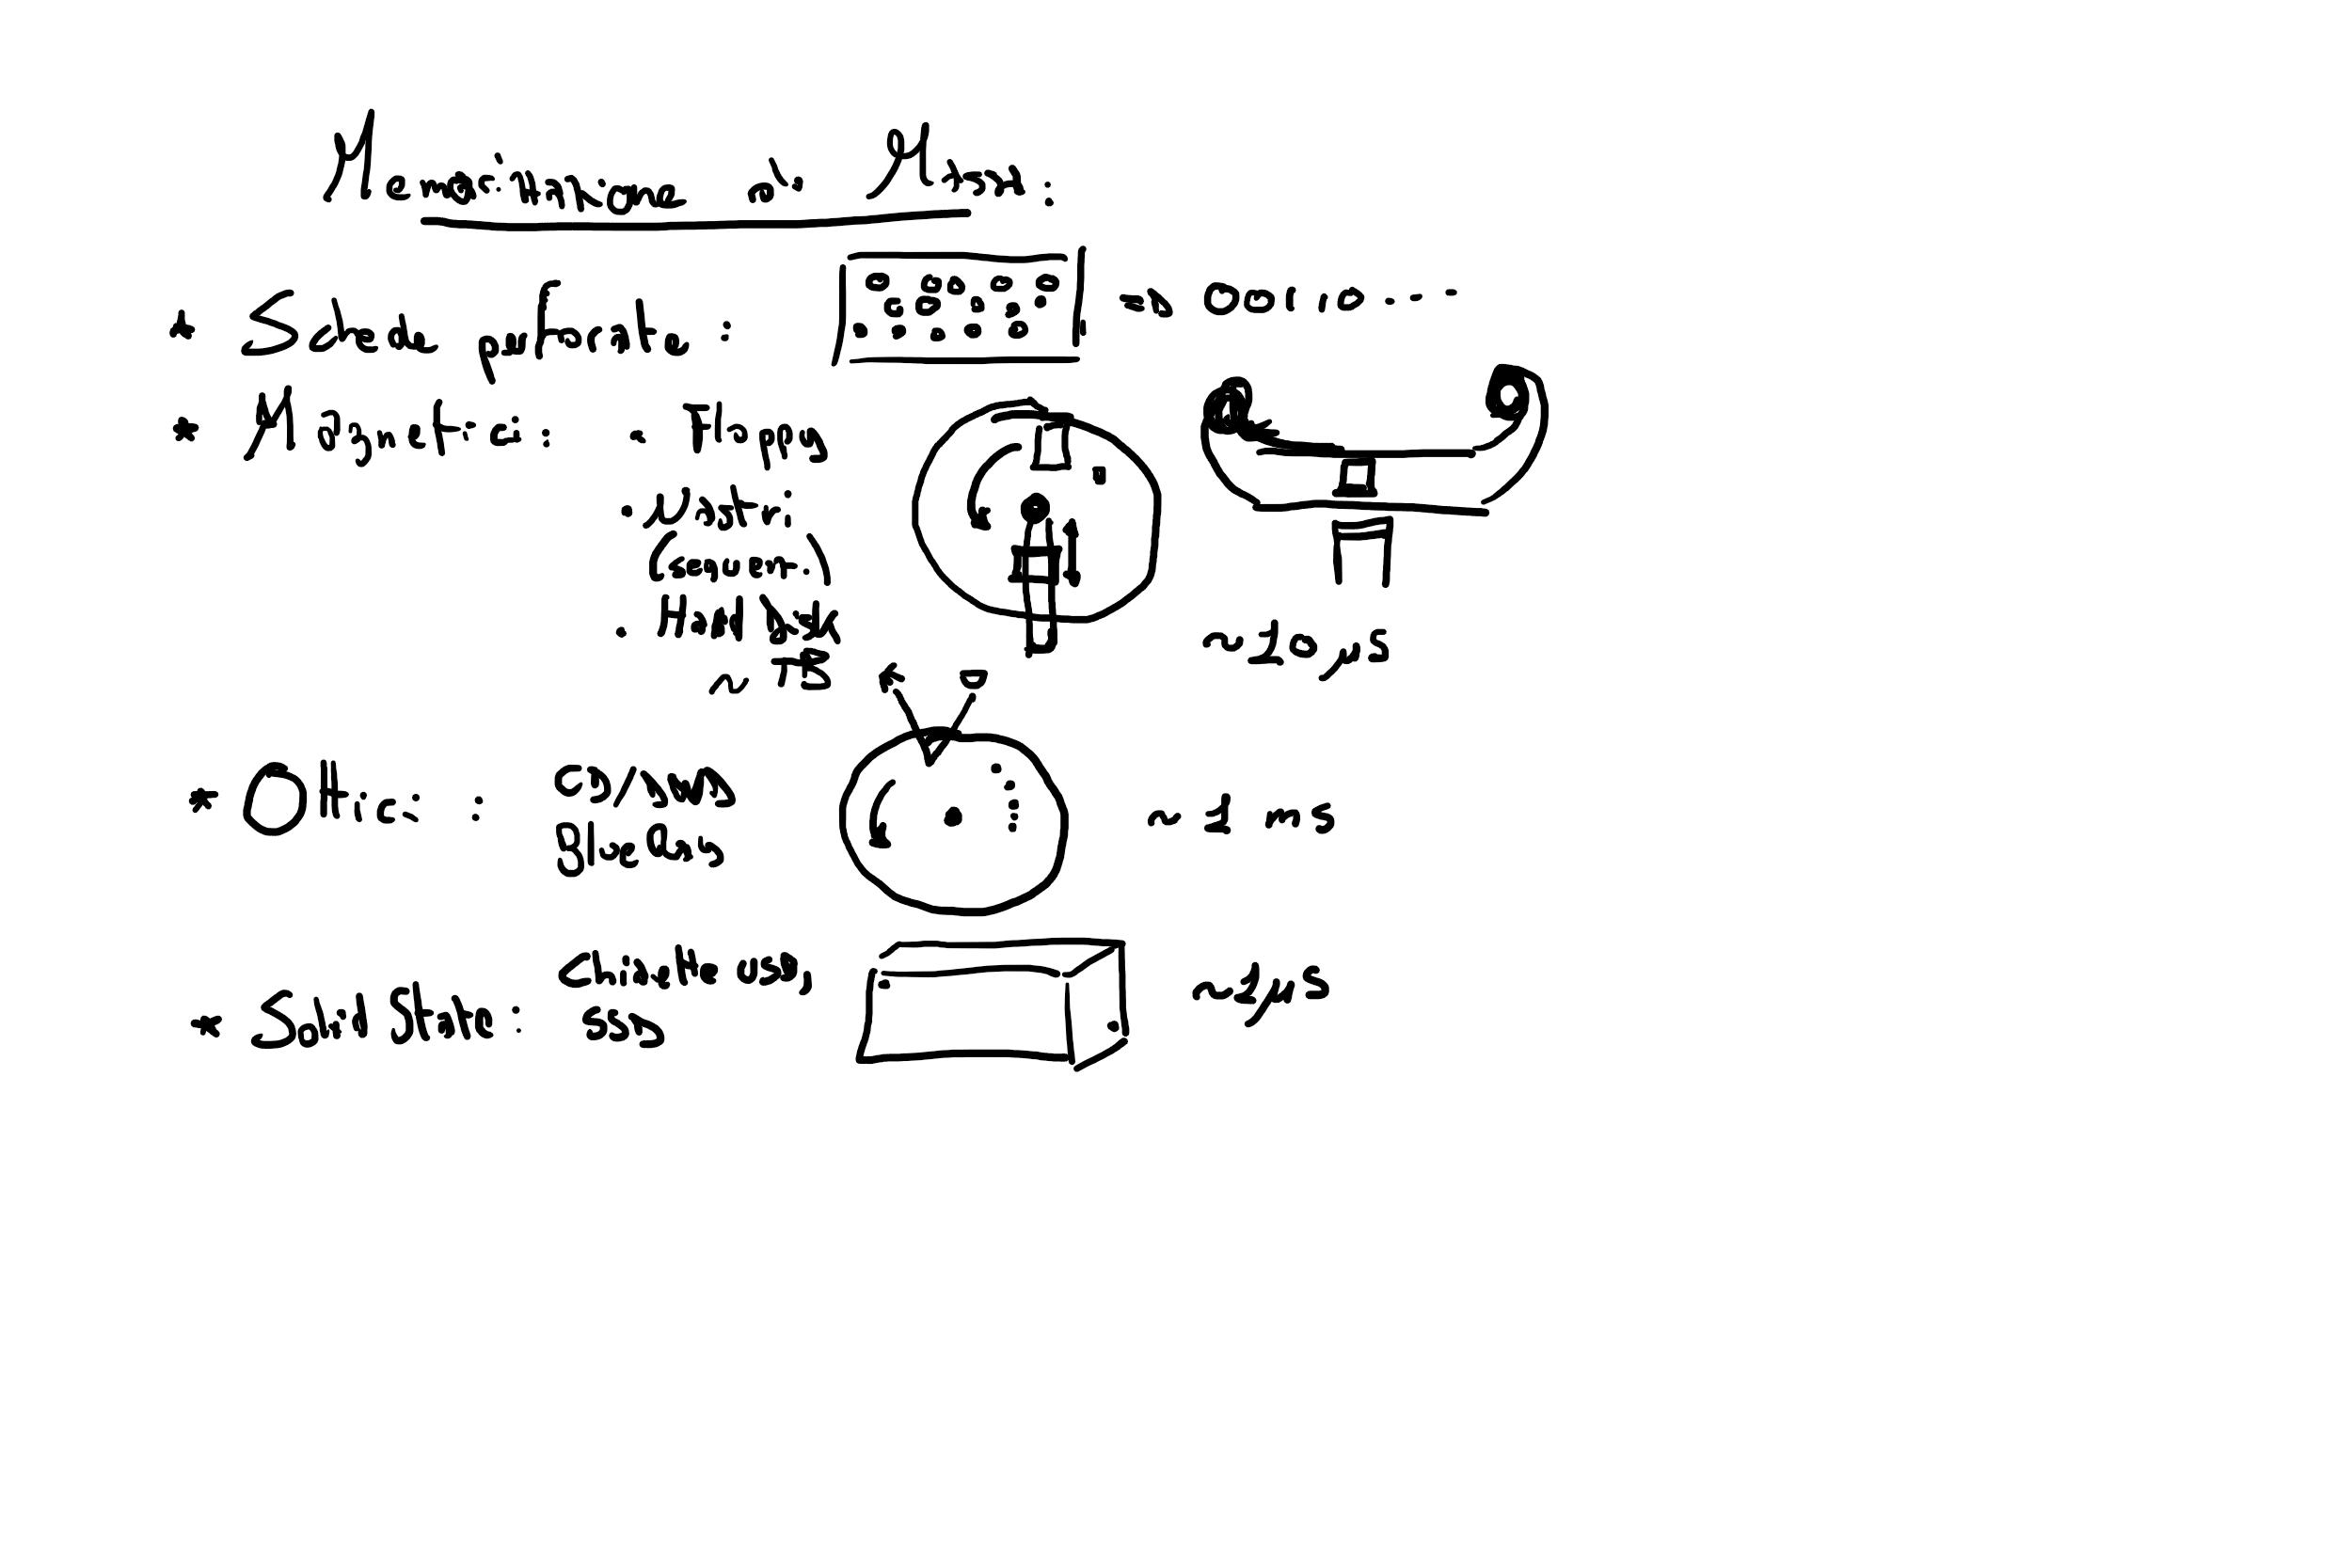 Memorizzazione di Massa:
* Schede perforate: => 00110 ---
* Magnetici: - Floppy
- Nastri
(Sequenz.)
- Hard Disk
~ TB
~10 μs
* Ottici : CD/DVD
BlueRay
~ 1 ms
* Solid State: Chiavette USB,
SSD
~1μs